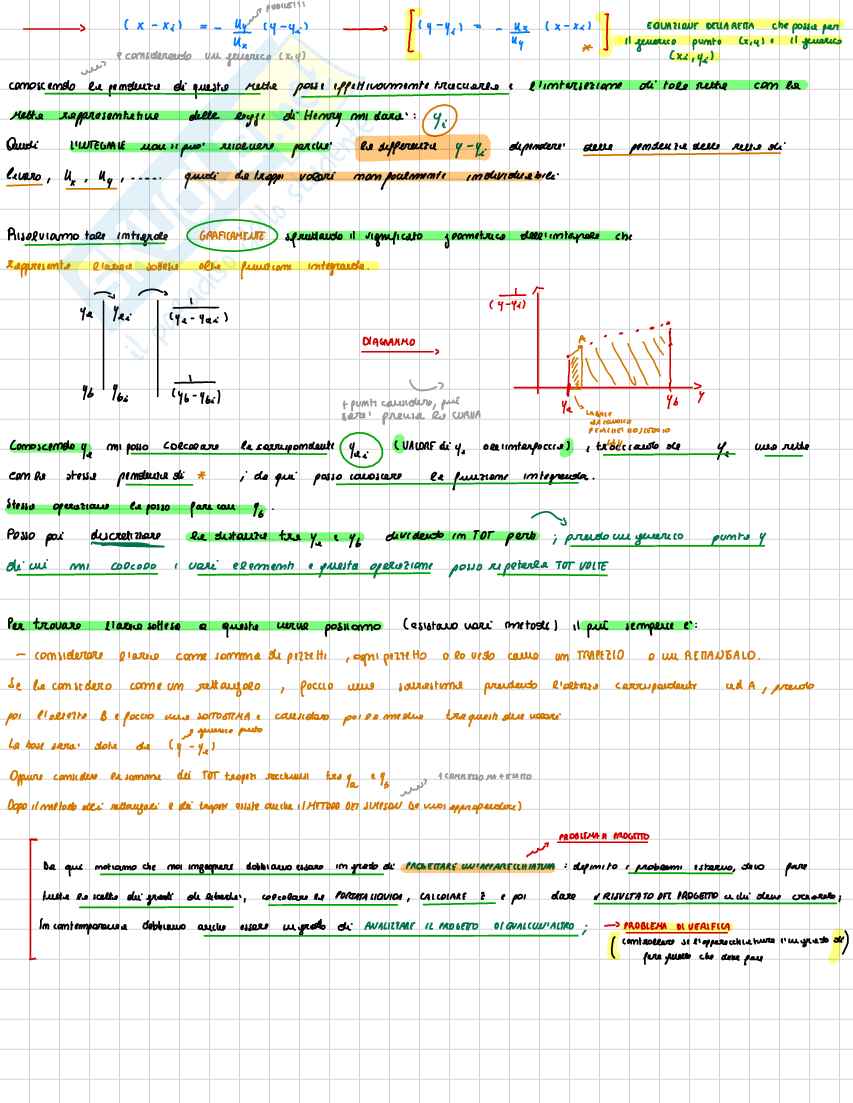 (x - xi) = - uy/ux (y - yi) [(y - yi) = - ux/uy (x - xi)] * EQUAZIONE DELLA RETTA che passa per
il generico punto (x,y) e il generico
(xi, yi)
e considerando un generico (x,y)
conoscendo la pendenza di questa retta posso effettivamente tracciarla e l'intersezione di tale retta con la
retta rappresentativa della legge di Henry mi darà: yi
Quindi L'INTEGRALE non si può risolvere perché la differenza y-yi dipenderà dalla pendenza della retta di
lavoro, ux, uy, ..... quindi da troppi valori non facilmente individuabili.
Risolviamo tale integrale GRAFICAMENTE sfruttando il significato geometrico dell'integrale che
rappresenta l'area sottesa alla funzione integranda.
ya yai 1/(ya - yai)
yb ybi 1/(yb - ybi)
DIAGRAMMO
1/(y-yi)
A
ya yb y
+ punti considero, più
sarà precisa la CURVA
Conoscendo ya mi posso calcolare la corrispondente yai (VALORE di ya all'interfaccia), tracciando da ya una retta
con la stessa pendenza di * ; da qui posso conoscere la funzione integranda.
Stessa operazione la posso fare con yb.
Posso poi discretizzare la distanza tra ya e yb dividendo in TOT parti ; prendo un generico punto y
di cui mi calcolo i vari elementi e questa operazione posso ripeterla TOT VOLTE
Per trovare l'area sottesa a questa curva possiamo (esistono vari metodi) il più semplice è:
- considerare l'area come somma di pezzetti, ogni pezzetto o lo vedo come un TRAPEZIO o un RETTANGOLO.
Se lo considero come un rettangolo, faccio una sovrastima prendendo l'altezza corrispondente ad A, prendo
poi l'altezza B e faccio una SOTTOSTIMA e considero poi la media tra questi due valori
generico punto
La base sarà data da (y - ya)
Oppure considero la somma dei TOT trapezi racchiusi tra ya e yb
Dopo il metodo dei rettangoli e dei trapezi esiste anche il METODO DI SIMPSON (se vuoi approfondire)
PROBLEMA DI PROGETTO
Da qui notiamo che noi ingegneri dobbiamo essere in grado di PROGETTARE UN'APPARECCHIATURA : definito i problemi esterno, devo fare
tutte le scelte dei gradi di libertà, calcolare la PORTATA LIQUIDA, CALCOLARE Z e poi dare il RISULTATO DEL PROGETTO a chi deve crearlo;
In contemporanea dobbiamo anche essere in grado di ANALIZZARE IL PROGETTO DI QUALCUN'ALTRO ; → PROBLEMA DI VERIFICA
(controllare se l'apparecchiatura è in grado di
fare quello che deve fare)